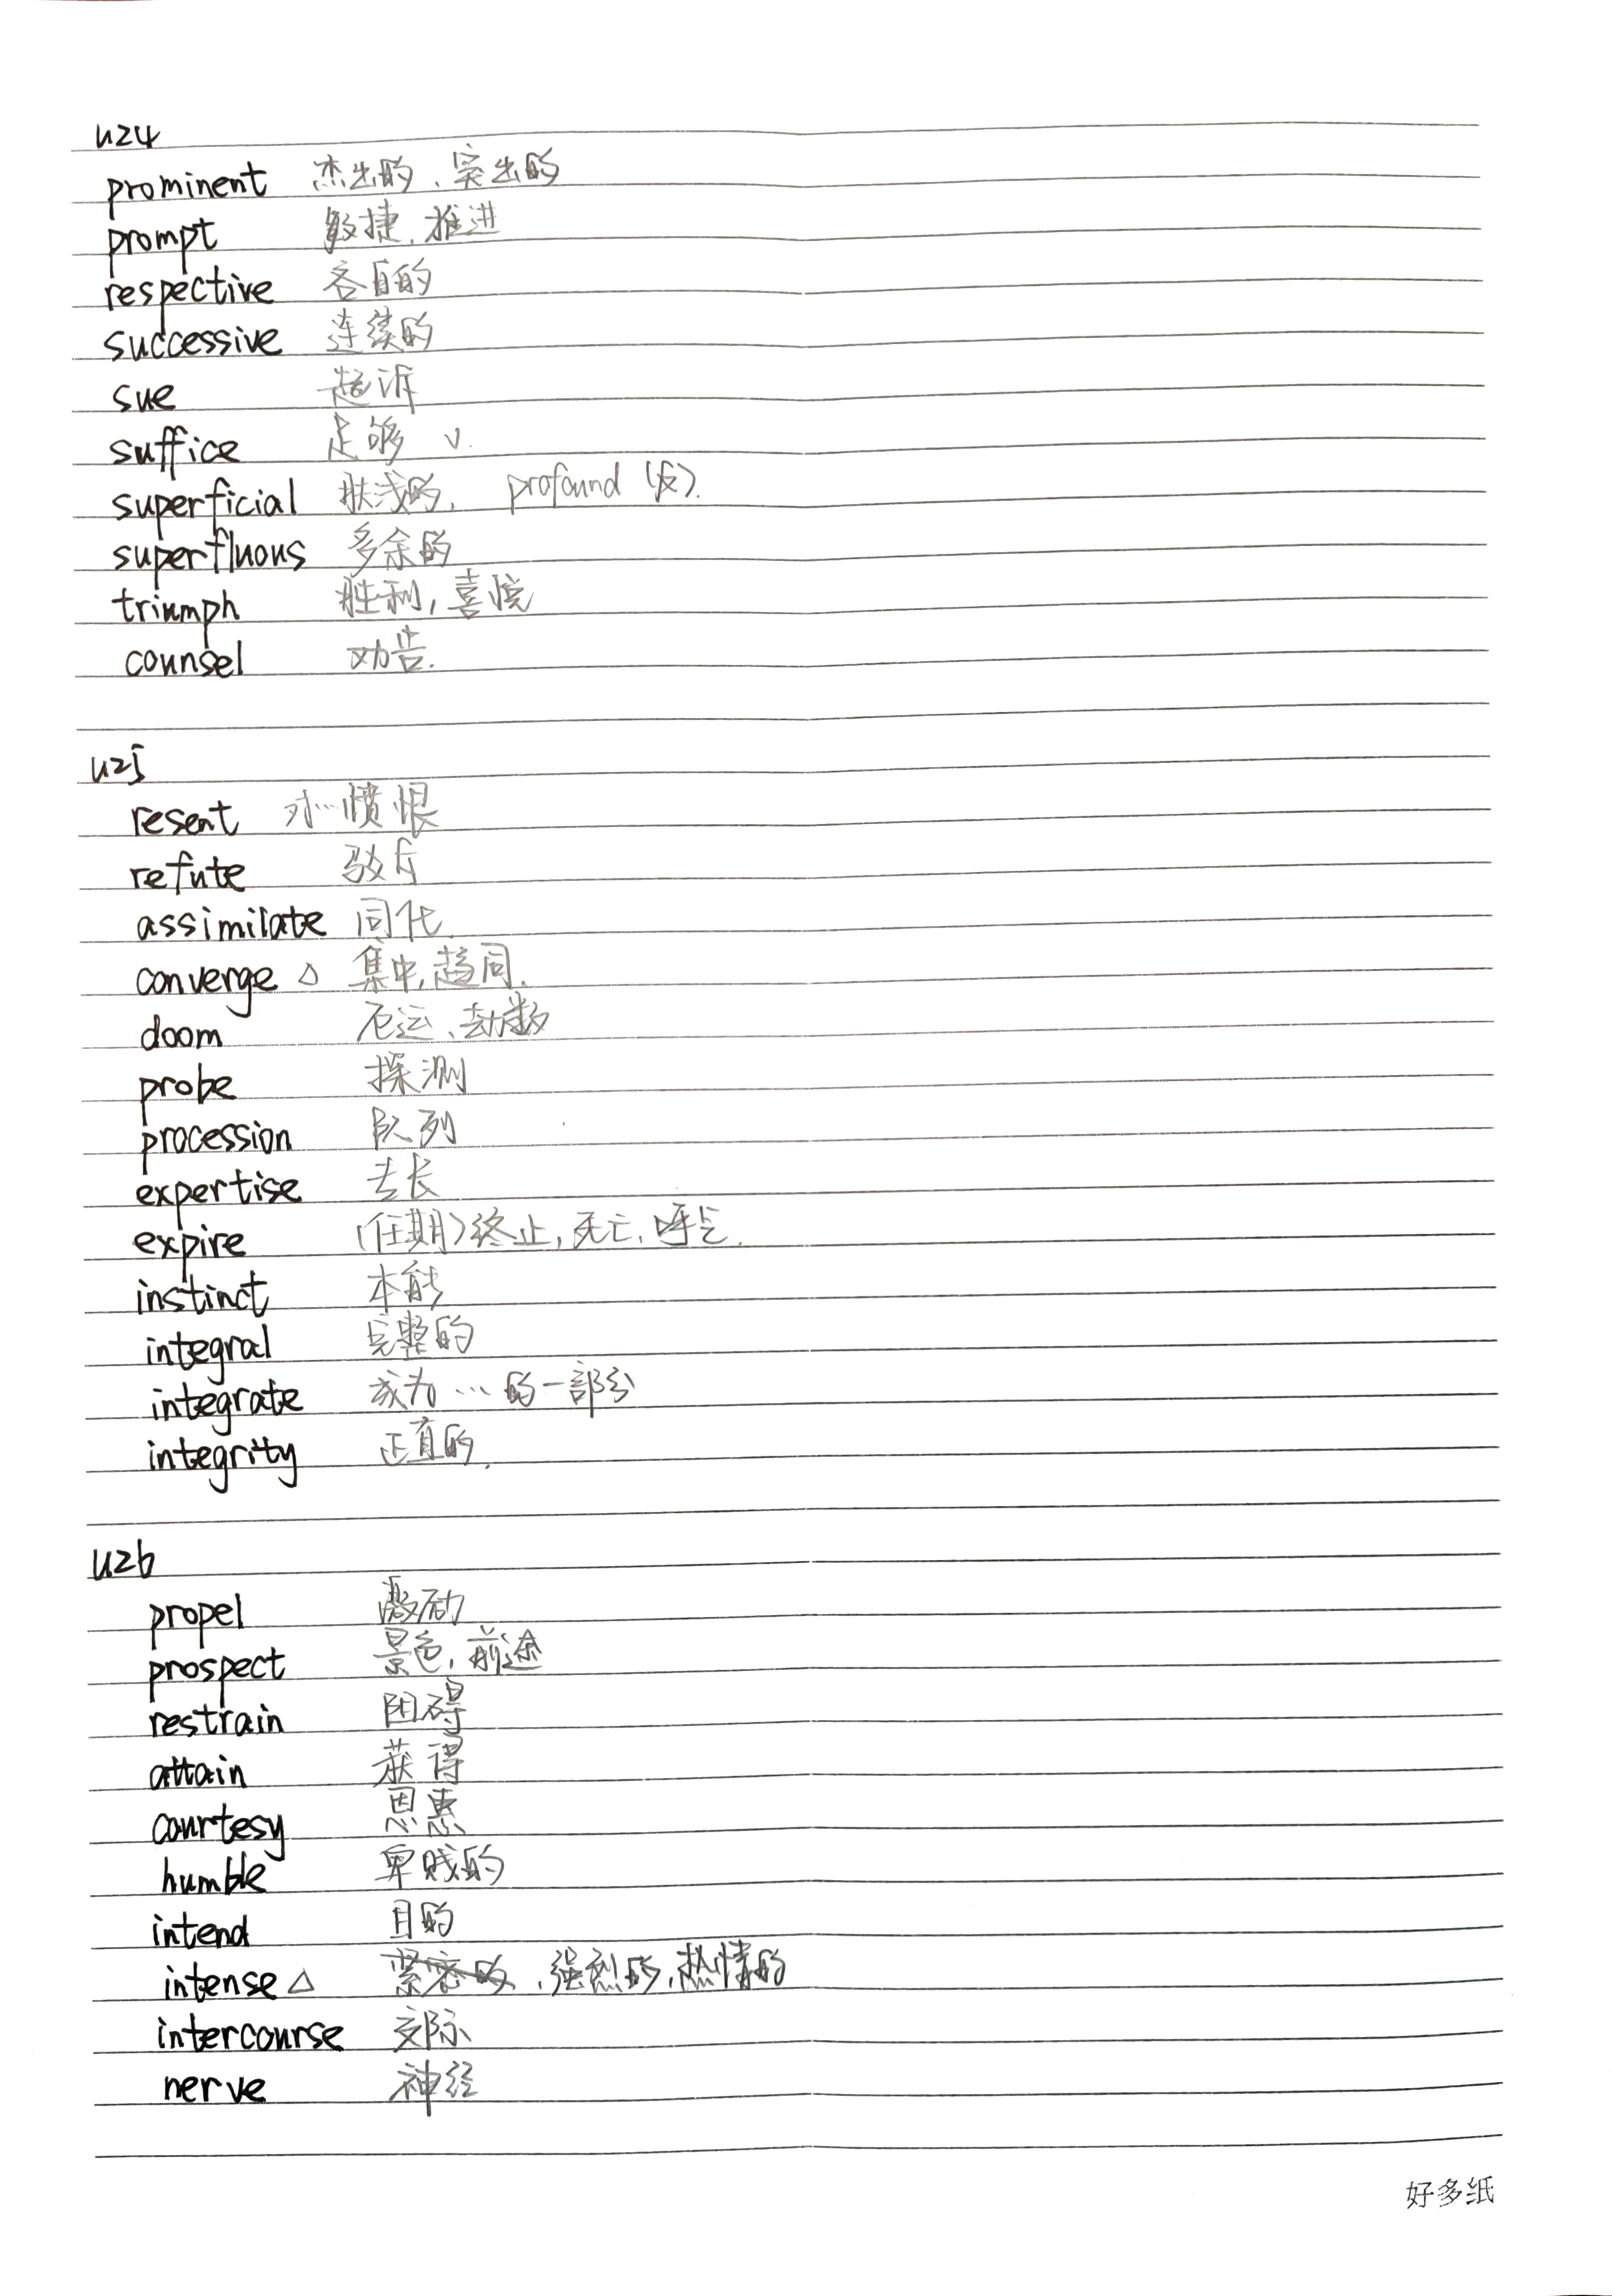 u24
prominent 杰出的、突出的
prompt 敏捷, 推进
respective 各自的
successive 连续的
sue 起诉
suffice 足够 v.
superficial 肤浅的, profound (反).
superfluous 多余的
triumph 胜利, 喜悦
counsel 劝告.
u25
resent 对…愤恨
refute 驳斥
assimilate 同化.
converge △ 集中, 趋同.
doom 厄运、劫数
probe 探测
procession 队列
expertise 专长
expire (任期)终止, 死亡, 呼气.
instinct 本能
integral 完整的
integrate 成为…的一部分
integrity 正直的.
u26
propel 激励
prospect 景色, 前途
restrain 阻碍
attain 获得
courtesy 恩惠
humble 卑贱的
intend 目的
intense △ 紧密的, 强烈的, 热情的
intercourse 交际
nerve 神经
好多纸